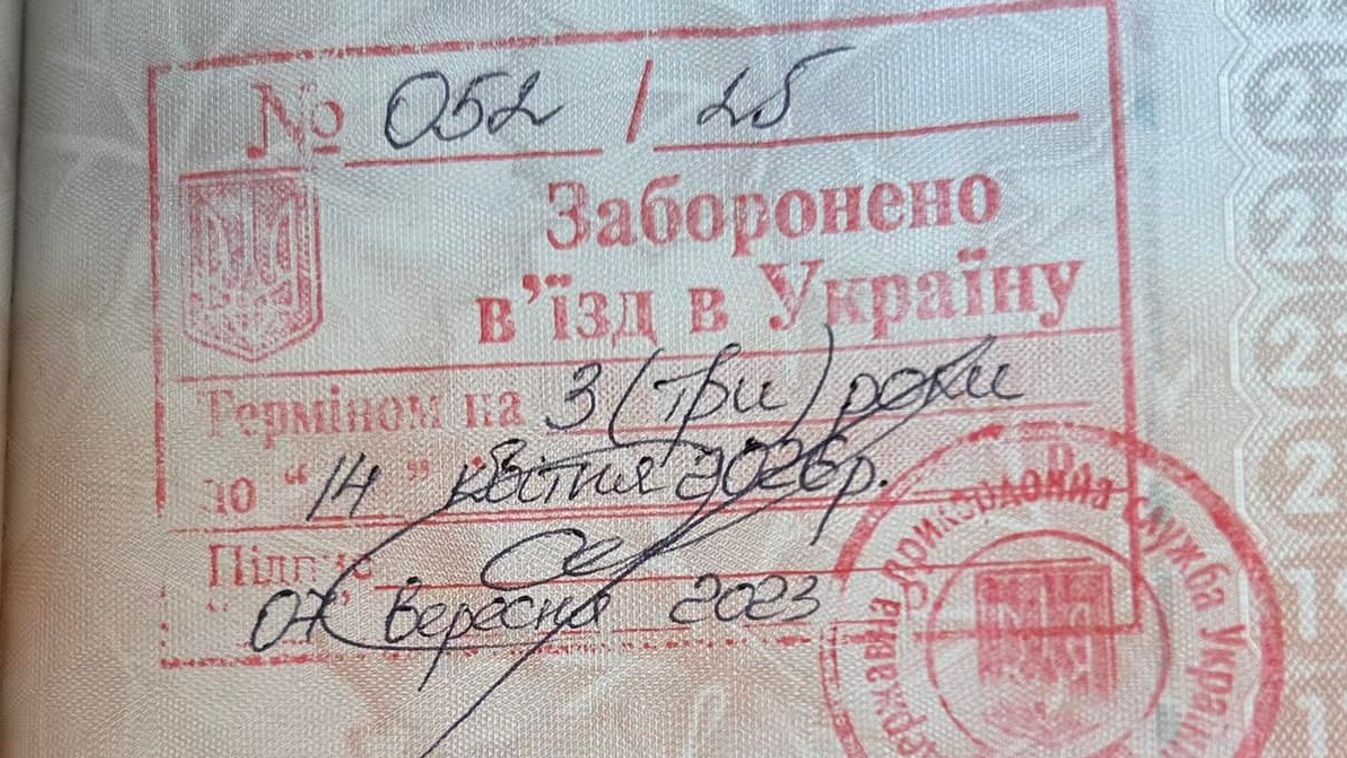 № 052 / 25
Заборонено
в'їзд в Україну
Терміном на 3 (три) роки
до “14” квітня 2026р.
Підпис
“07” Вересня 2023
Державна прикордонна служба України